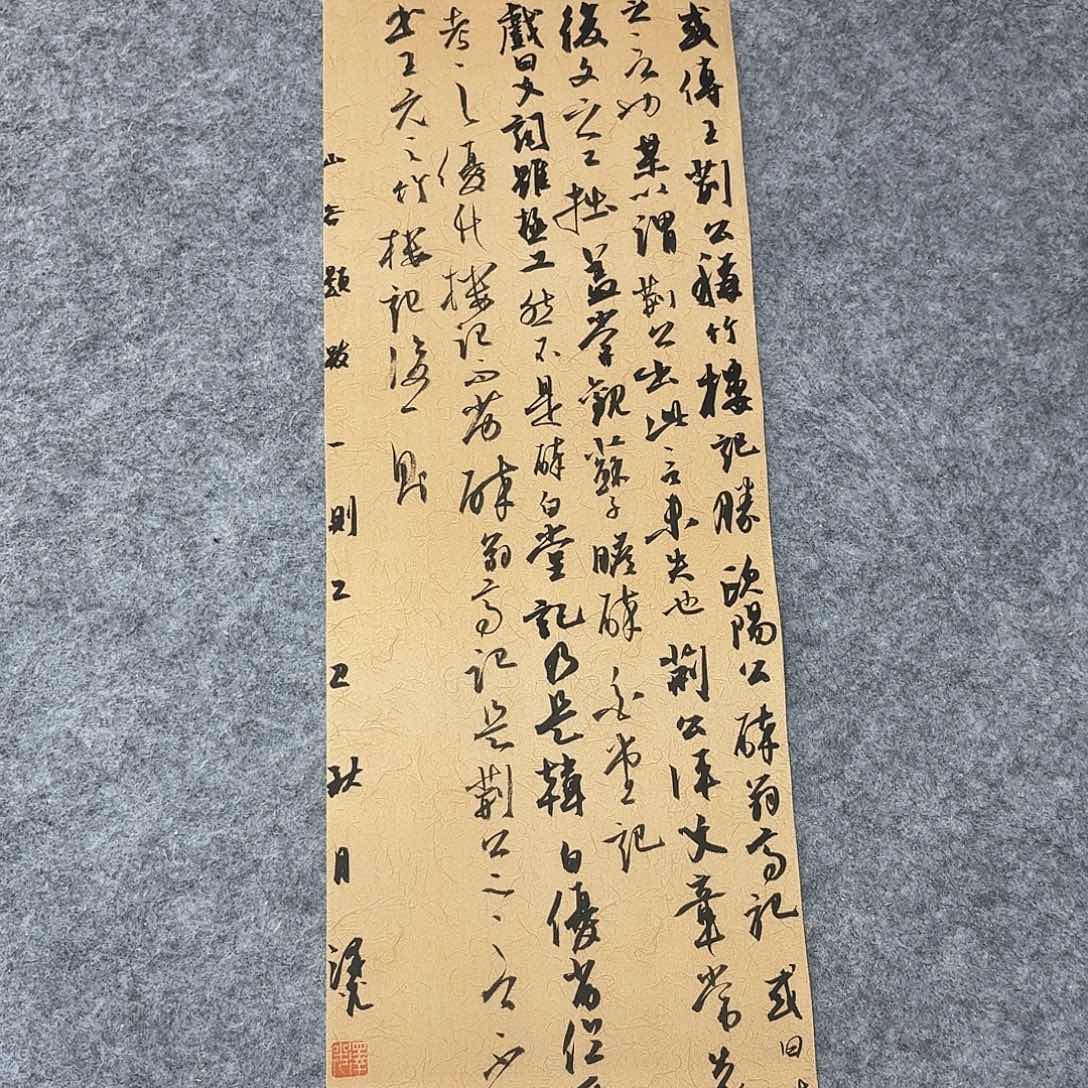 或傳王荊公稱竹樓記勝歐陽公醉翁亭記或曰
之言也某以謂荊公出此言未失也荊公評文章常先
後文之工拙蓋嘗觀蘇子瞻醉白堂記
戲曰文詞雖極工然不是醉白堂記乃是韓白優劣論
考之優竹樓記而劣醉翁亭記是荊公之言不
書王元之竹樓記後一則
山谷題跋一則 乙卯秋月